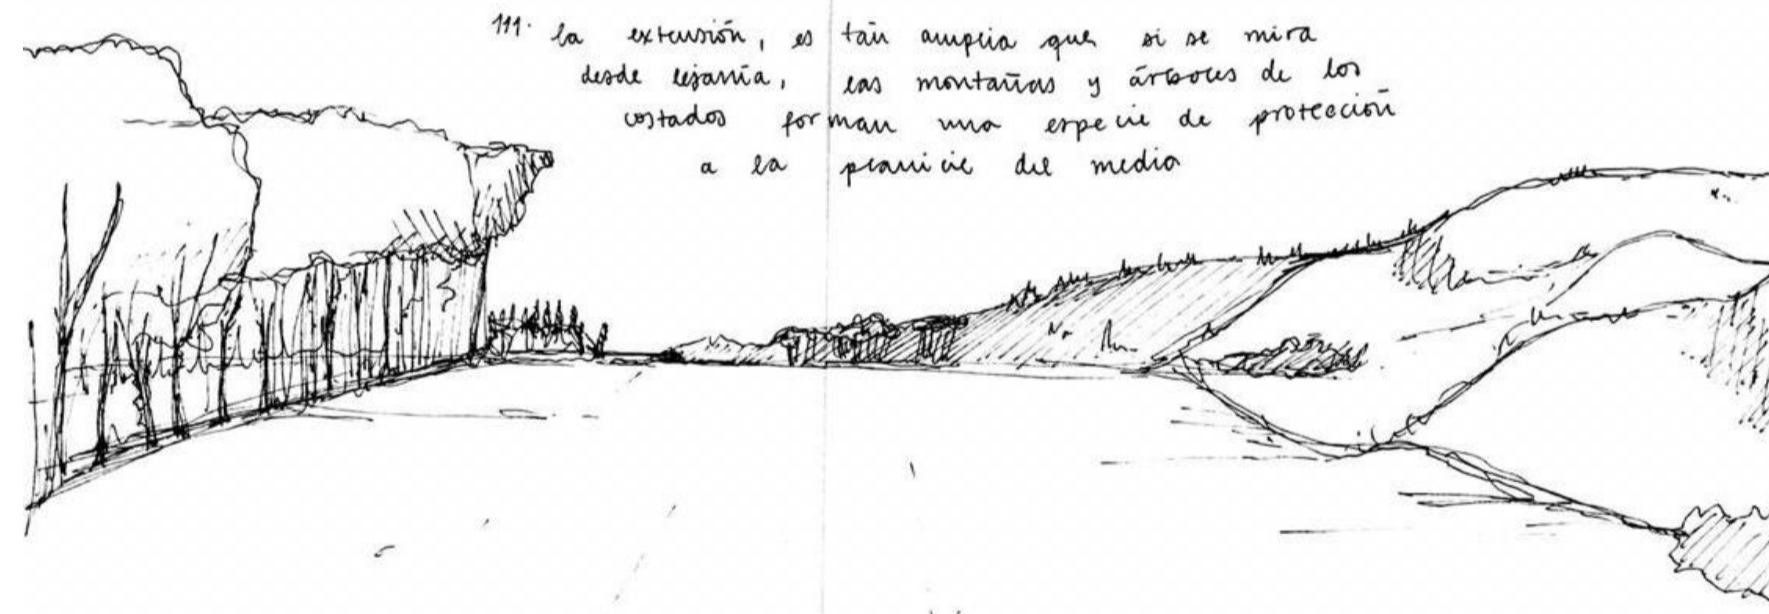 111. la extensión, es tan amplia que si se mira
desde lejanía, las montañas y árboles de los
costados forman una especie de protección
a la planicie del medio